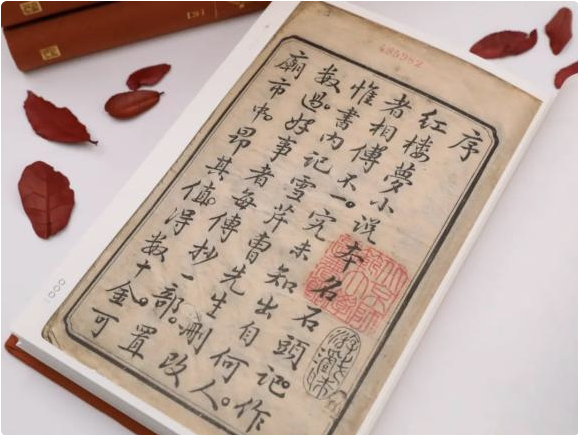 序
红楼夢小说本名石頭记。作
者相傳不一。究未知出自何人。
惟書内记雪芹曹先生删改
数過。好事者每傳抄一部。置
廟市中昂其值。得数十金。可